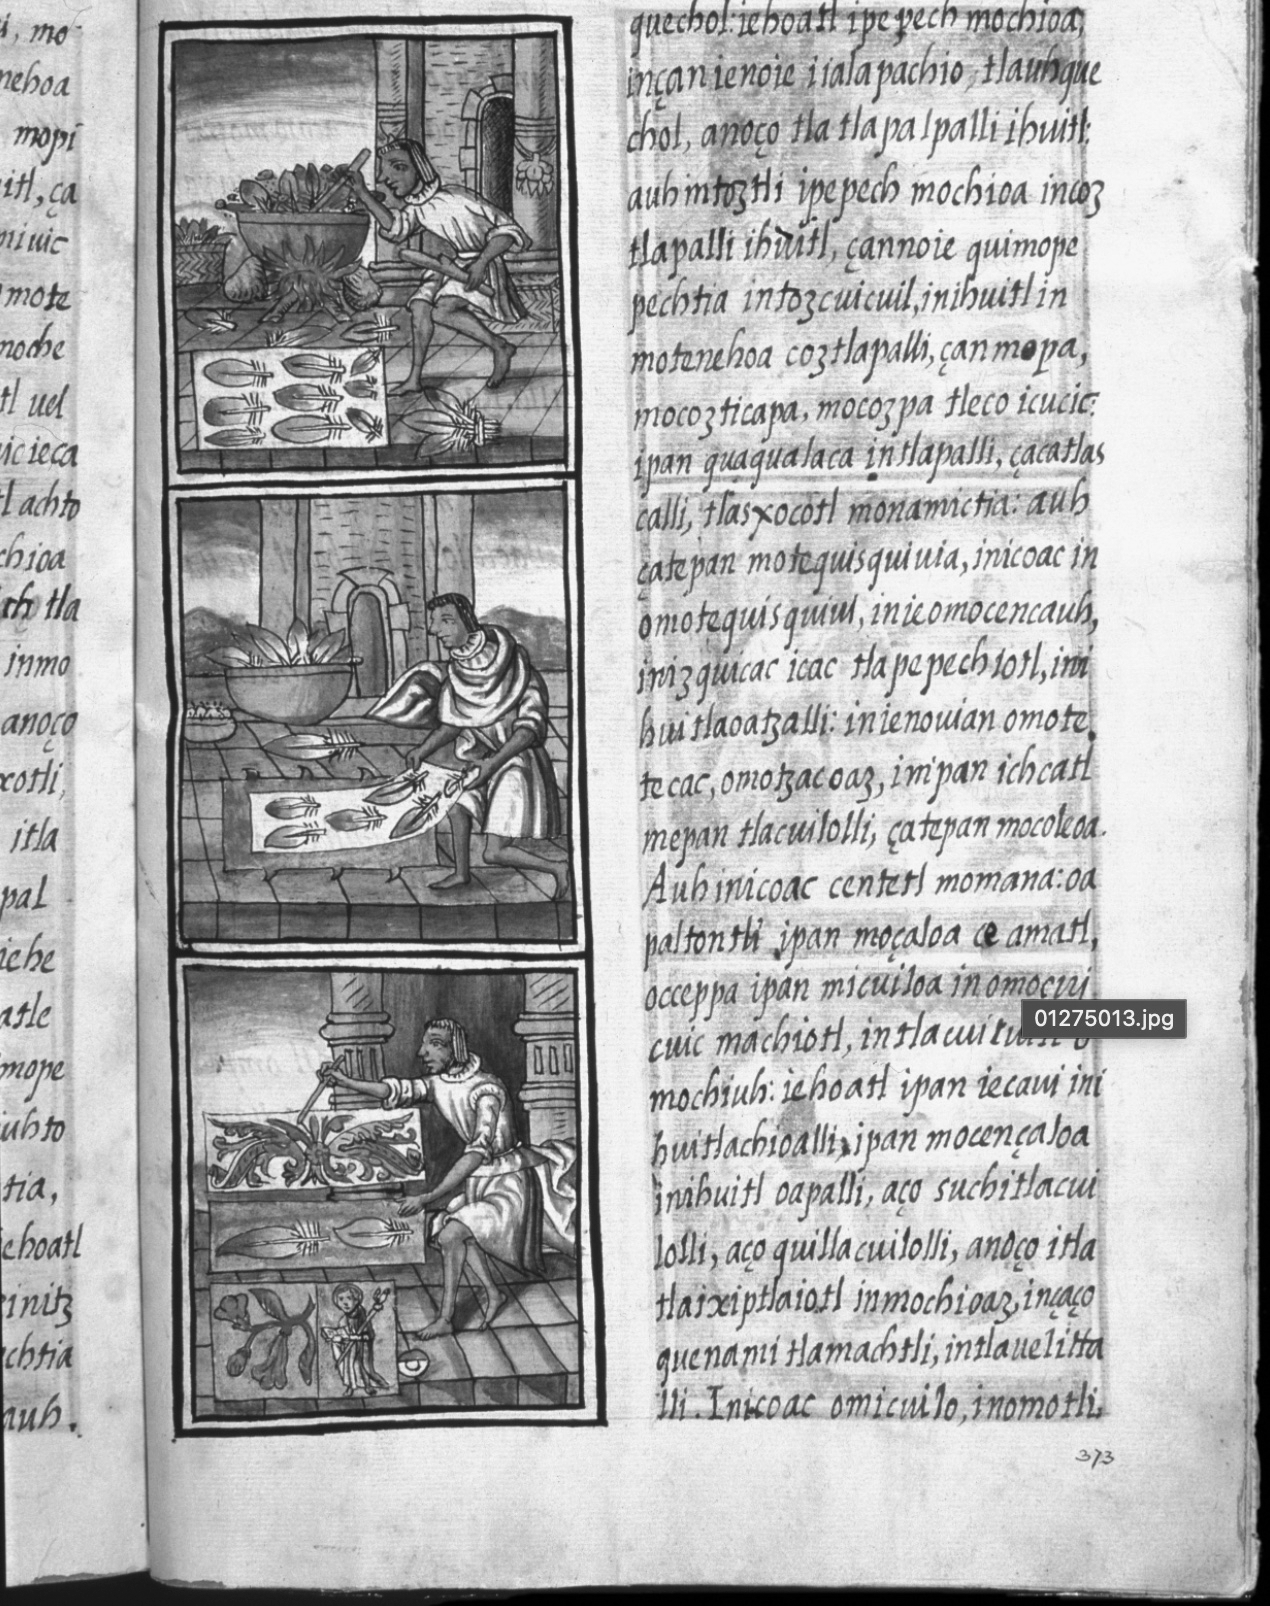 mo
nehoa
mopi
itl, ça
niuic
mote
noche
tl uel
icieca
tl achto
chioa
tla
inmo
anoço
xotli,
itla
pal
iehe
atle
mope
iuhto
tia,
ehoatl
initz
echtia
auh.
quechol: iehoatl ipepech mochioa,
inçan ienoie iialapachio, tlauhque
chol, anoço tlatlapalpalli ihuitl:
auh intoztli ipepech mochioa incoz
tlapalli ihuitl, çannoie quimope
pechtia intozcuicuil, inihuitl in
motenehoa coztlapalli, çan mopa,
mocozticapa, mocozpa tleco icucic:
ipan quaqualaca intlapalli, çacatlas
calli, tlasxocotl monamictia: auh
çatepan motequisquiuia, inicoac in
omotequisquiuì, inie omocencauh,
inizquicac icac tlapepechiotl, ini
huitlaoatzalli: inienouian omote,
tecac, omotzacoaz, inipan ichcatl
mepan tlacuilolli, çatepan mocoleoa.
Auh inicoac centetl momana: oa
paltontli ipan moçaloa ce amatl,
occeppa ipan micuiloa in omociri
cuic machiotl,
mochiuh: iehoatl ipan iecaui ini
huitlachioalli, ipan mocençaloa
inihuitl oapalli, aço suchitlacui
lolli, aço quillacuilolli, anoço itla
tlaixiptlaiotl inmochioaz, inçaço
quenami tlamachtli, intlauelitta
lli. Inicoac omicuilo, inomotli,
373
01275013.jpg